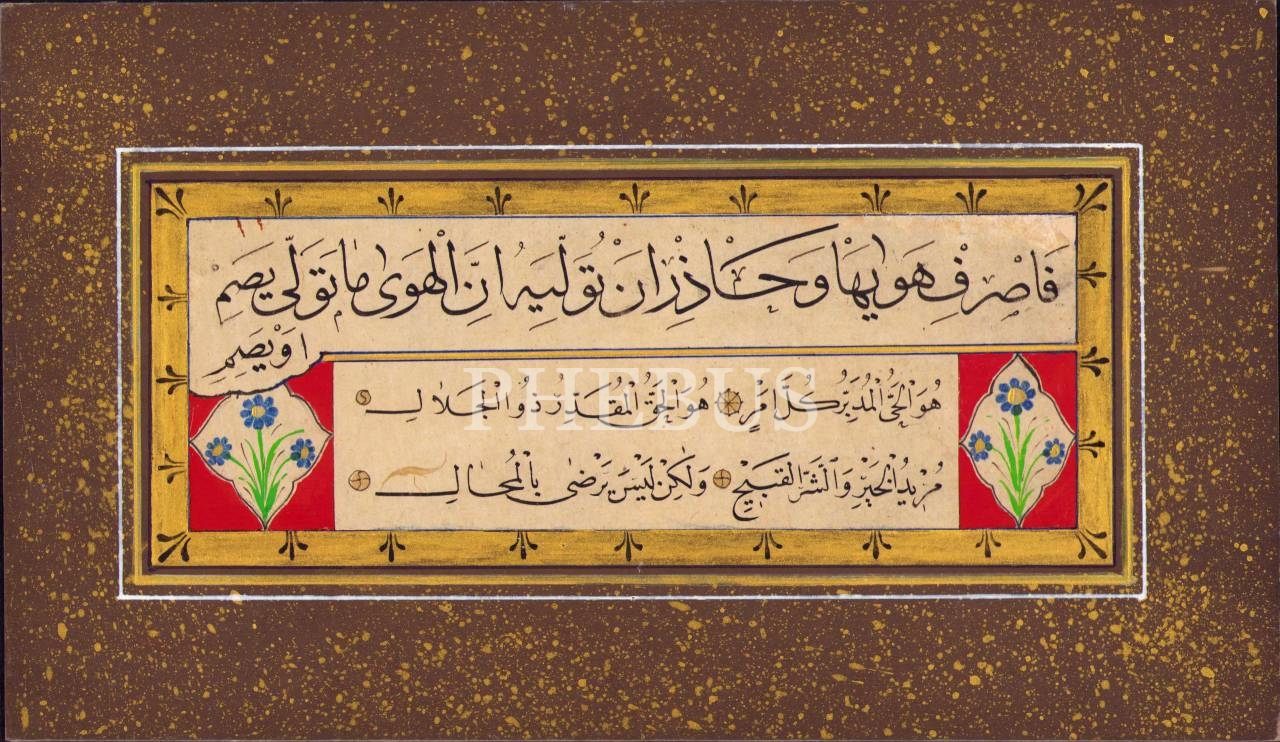 فَاصْرِفْ هَوٰيهَا وَحَاذِرْ اَنْ تُوَلِّيَهُ اِنَّ الْهَوٰى مَا تَوَلّٰى يُصْمِ
اَوْ يَصِمِ
هُوَ الْحَىُّ الْمُدَبِّرُ كُلَّ اَمْرٍ هُوَ الْحَقُّ الْمُقَدِّرُ ذُو الْجَلَالِ
مُرِيدُ الْخَيْرِ وَالشَّرِّ الْقَبِيحِ وَلٰكِنْ لَيْسَ يَرْضٰى بِالْمُحَالِ
PHEBUS